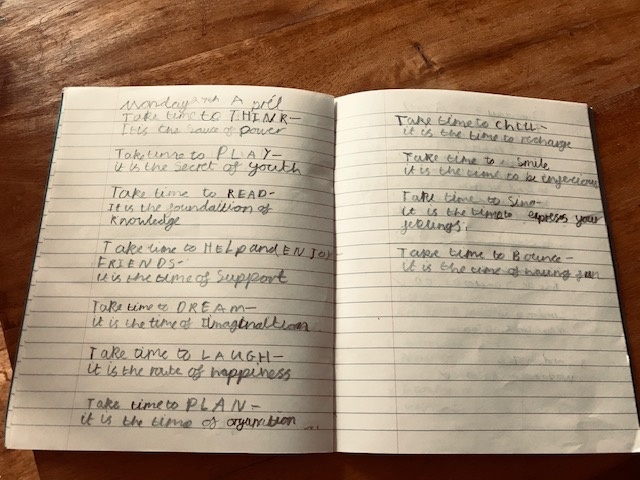 Monday April
Take time to THINK-
It is the source of power
Take time to PLAY-
it is the Secret of youth
Take time to READ-
It is the foundaltion of
Knowledge
Take time to HELP and ENJOY
FRIENDS-
it is the time of Support
Take time to DREAM-
it is the time of
Take time to LAUGH-
it is the route of happiness
Take time to PLAN-
it is the time of
Take time to chill-
it is the time to recharge
Take time to Smile
it is the time to be
Take time to Sing-
it is the time to express your
feelings.
Take time to Bounce-
it is the time of having fun